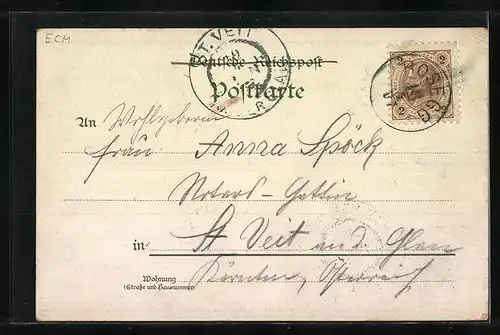 ECM
ST. VEIT
Deutsche Reichspost
Postkarte
2 2
ROSEGG
An Wohlgeboren
Frau Anna Spöck
Notars-Gattin
in St Veit and. Glan
Kärnten, Österreich
Wohnung
(Straße und Hausnummer)